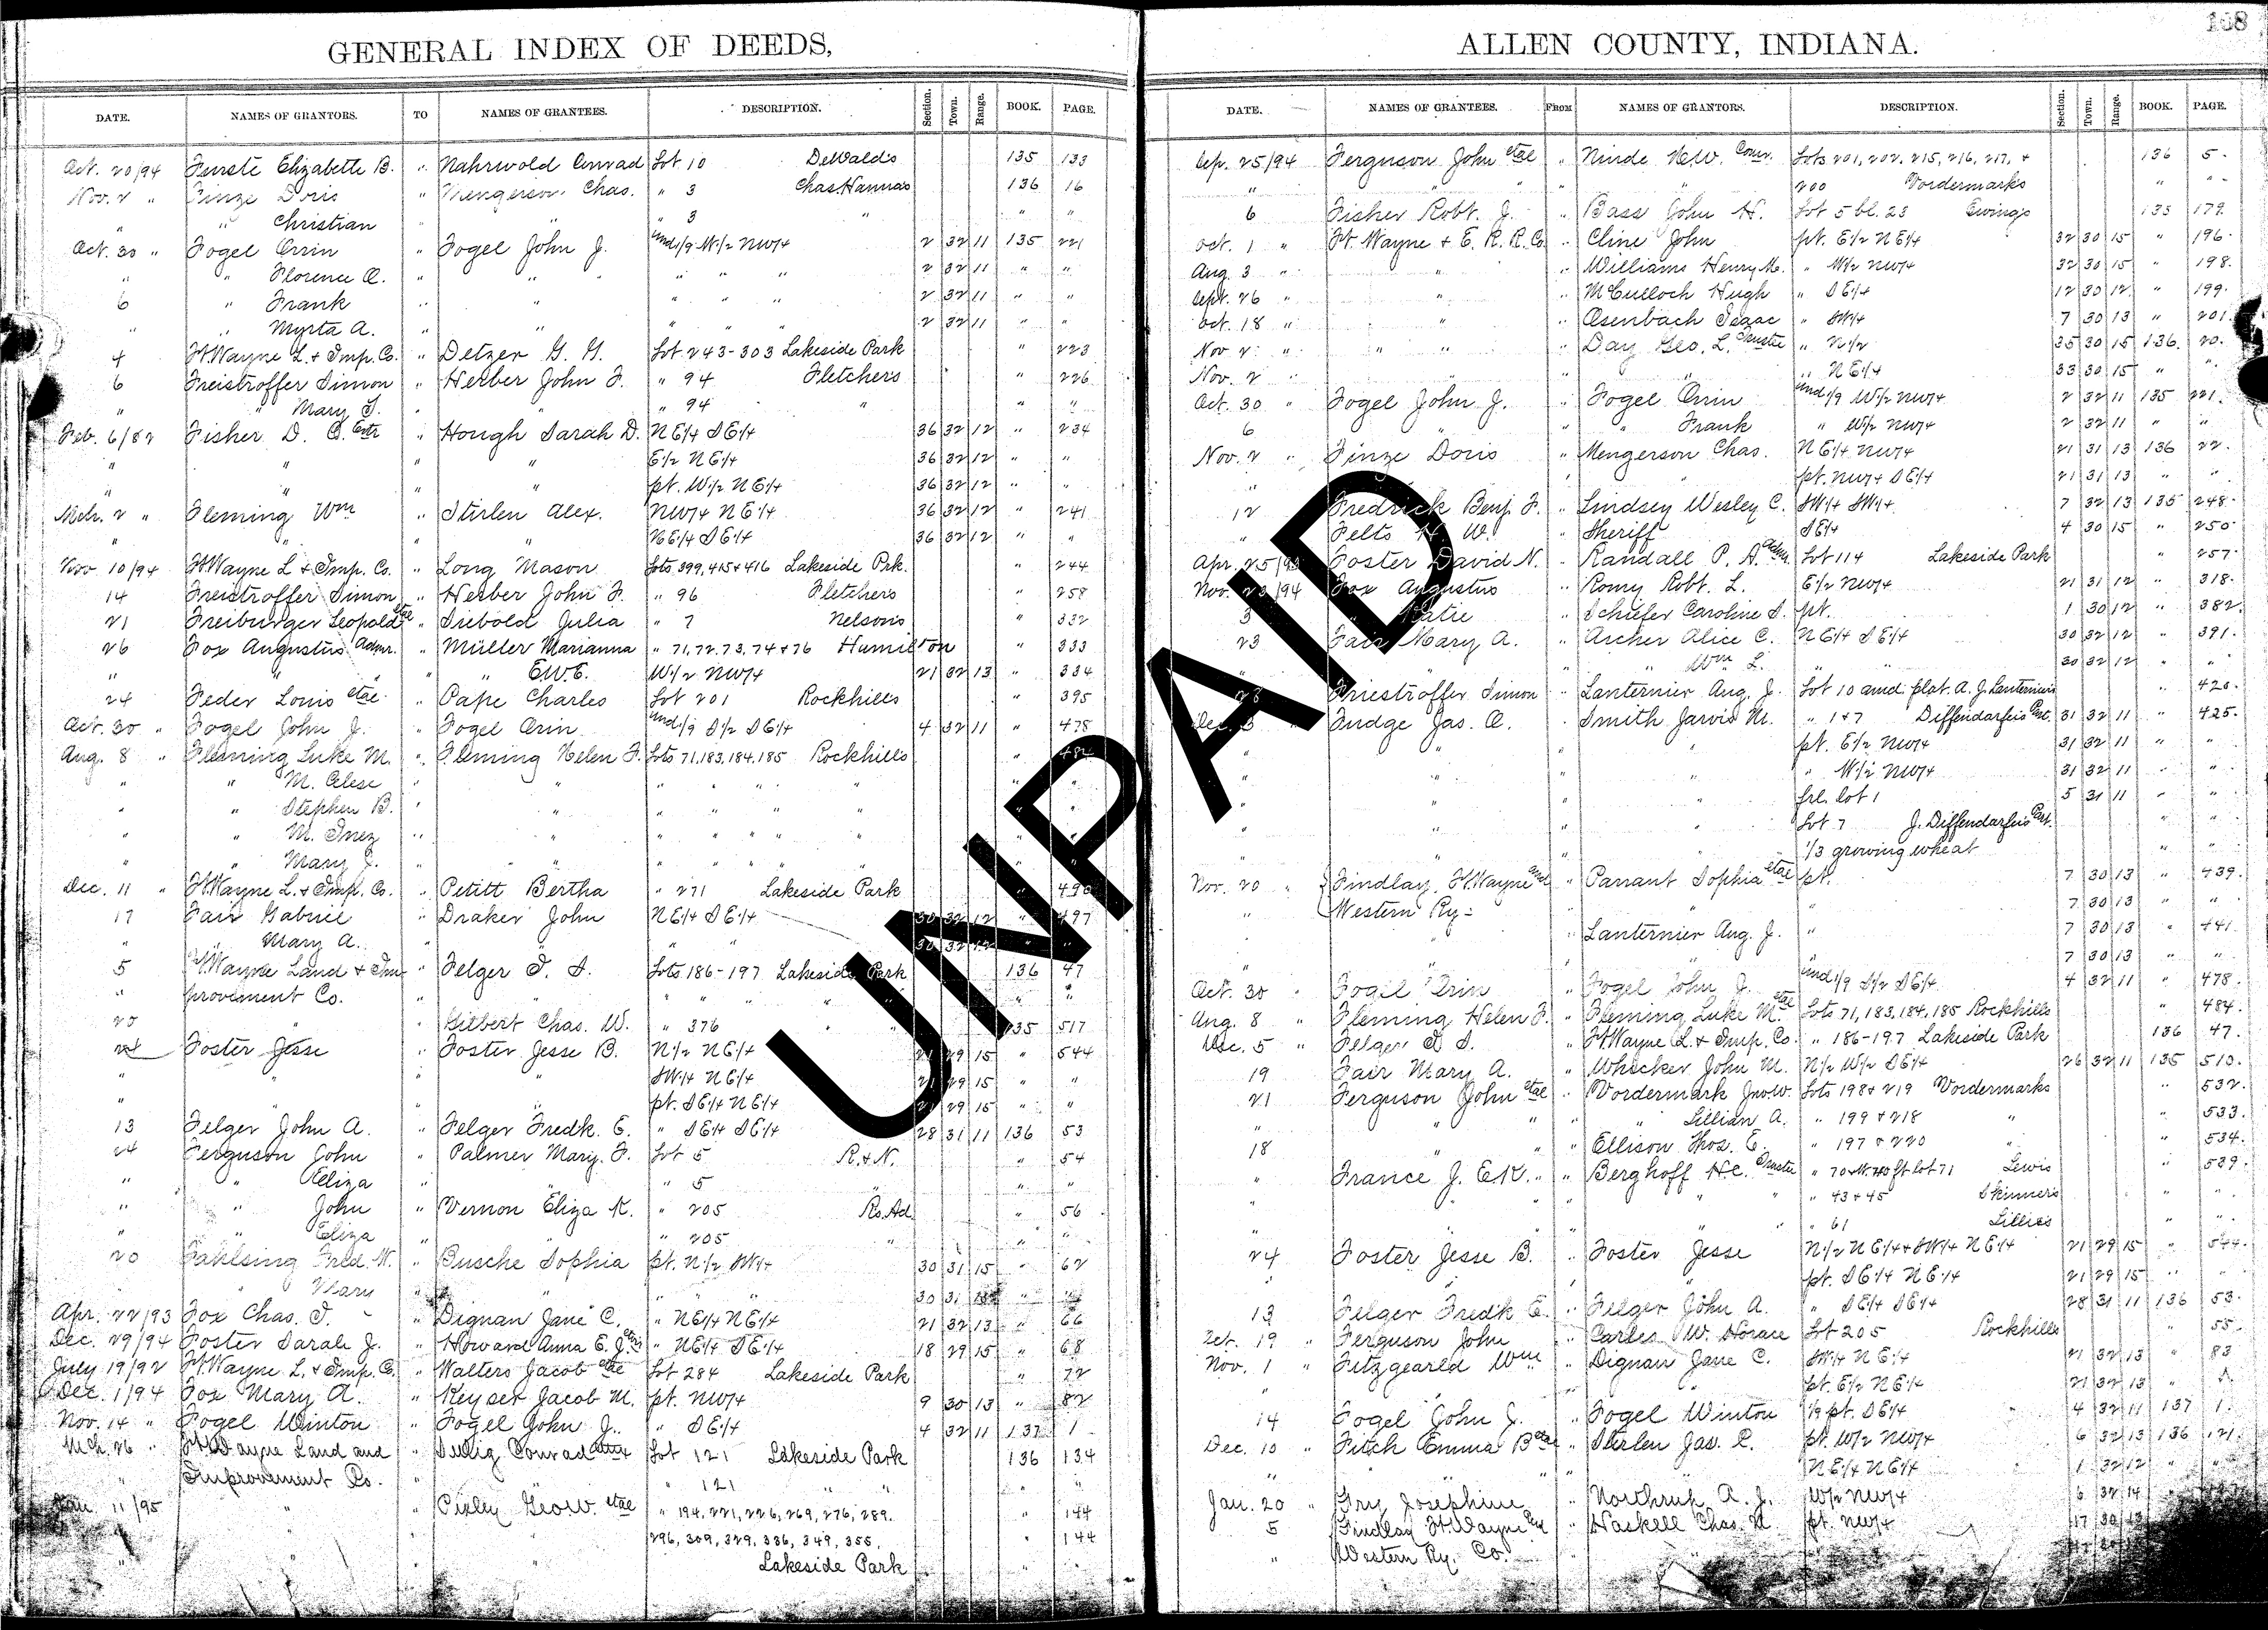 108
GENERAL INDEX OF DEEDS,
DATE. NAMES OF GRANTORS. TO NAMES OF GRANTEES. DESCRIPTION. Section. Town. Range. BOOK. PAGE.
Oct. 20/94 Furste Elizabette B. " Nahrwold Conrad Lot 10 DeWalds 135 133
Nov. 2 " Finze Doris " Mengerson Chas. " 3 Chas Hannas 136 16
" " Christian " " " 3 " " "
Oct. 30 " Fogel Orrin " Fogel John J. und 1/9 W 1/2 NW 1/4 2 32 11 135 221
" " Florence A. " " " " " 2 32 11 " "
6 " Frank " " " " " 2 32 11 " "
" " Myrta A. " " " " " 2 32 11 " "
4 Ft Wayne L. & Imp. Co. " Detzer G. G. Lot 243-303 Lakeside Park " 223
6 Freistroffer Simon " Herber John F. " 94 Fletchers " 226
" " Mary S. " " " 94 " " "
Feb. 6/82 Fisher D. C. Extr " Hough Sarah D. NE 1/4 SE 1/4 36 32 12 " 234
" " " " E 1/2 NE 1/4 36 32 12 " "
" " " " pt. W 1/2 NE 1/4 36 32 12 " "
Mch. 2 " Fleming Wm " Stirlen Alex. NW 1/4 NE 1/4 36 32 12 " 241
" " " " NE 1/4 SE 1/4 36 32 12 " "
Nov 10/94 Ft Wayne L & Imp. Co. " Long Mason Lots 399, 415 & 416 Lakeside Prk. " 244
14 Freistroffer Simon " Herber John F. " 96 Fletchers " 258
21 Freiburger Leopold etal " Siebold Julia " 7 Nelsons " 332
26 Fox Augustus Admr. " Müller Marianna " 71, 72, 73, 74 & 76 Hamilton " 333
" " " " E.W.E. W 1/2 NW 1/4 21 32 13 " 334
24 Feder Louis etal " Pape Charles Lot 201 Rockhills " 395
Oct. 30 " Fogel John J. " Fogel Orin und 1/9 S 1/2 SE 1/4 4 32 11 " 478
Aug. 8 " Fleming Luke M. " Fleming Helen F. Lots 71, 183, 184, 185 Rockhills " 484
" " M. Celese " " " " " " "
" " Stephen B. " " " " " " "
" " M. Inez " " " " " " "
" " Mary J. " " " " " " "
Dec. 11 " Ft Wayne L. & Imp. Co. " Petitt Bertha " 271 Lakeside Park " 490
17 Fair Gabriel " Draker John NE 1/4 SE 1/4 30 32 12 " 497
" " Mary A. " " " " 30 32 12 " "
5 Ft Wayne Land & Im- " Felger S. S. Lots 186-197 Lakeside Park 136 47
" provement Co. " " " " " " " "
20 " " Gilbert Chas. W. " 376 " " 135 517
24 Foster Jesse " Foster Jesse B. N 1/2 NE 1/4 21 29 15 " 544
" " " " SW 1/4 NE 1/4 21 29 15 " "
" " " " pt. SE 1/4 NE 1/4 21 29 15 " "
13 Felger John A. " Felger Fredk. E. " SE 1/4 SE 1/4 28 31 11 136 53
24 Ferguson John " Palmer Mary F. Lot 5 R. & N. " 54
" " Eliza " " " 5 " " "
" " John " Vernon Eliza K. " 205 Ro. Ad. " 56
" " Eliza " " " 205 " " "
20 Fahlsing Fred. W. " Busche Sophia pt. N 1/2 SW 1/4 30 31 15 " 62
" " Mary " " " " 30 31 15 " "
Apr. 22/93 Fox Chas. T. " Dignan Jane C. " NE 1/4 NE 1/4 21 32 13 " 66
Dec. 29/94 Foster Sarah J. " Howard Anna E. J. " NE 1/4 SE 1/4 18 29 15 " 68
July 19/92 Ft Wayne L. & Imp. Co. " Walters Jacob etal Lot 284 Lakeside Park " 72
Dec. 1/94 Fox Mary A. " Keyser Jacob M. pt. NW 1/4 9 30 13 " 82
Nov. 14 " Fogel Winton " Fogel John J. " SE 1/4 4 32 11 137 1
Mch. 26 " Ft Wayne Land and " Conrad Lot 121 Lakeside Park 136 134
" Improvement Co. " 121 " " "
Jan. 11/95 " " Pixley Geo. W. etal " 194, 221, 226, 269, 276, 289. " 144
296, 309, 329, 336, 349, 355, " 144
" " Lakeside Park
ALLEN COUNTY, INDIANA.
DATE. NAMES OF GRANTEES. FROM NAMES OF GRANTORS. DESCRIPTION. Section. Town. Range. BOOK. PAGE.
Sep. 25/94 Ferguson John etal " Ninde H. W. Comr. Lots 201, 202, 215, 216, 217, & 136 5
" " " " " 200 Vordermarks " "
6 Fisher Robt. J. " Bass John H. Lot 5 bl. 23 Ewings 135 179
Oct. 1 " Ft. Wayne & E. R. R. Co. " Cline John pt. E 1/2 NE 1/4 32 30 15 " 196
Aug. 3 " " " Williams Henry M. " W 1/2 NW 1/4 32 30 15 " 198
Sept. 26 " " " McCulloch Hugh " SE 1/4 12 30 12 " 199
Oct. 18 " " " Osenbach Isaac " SW 1/4 7 30 13 " 201
Nov. 2 " " " Day Geo. L. Trustee " N 1/2 35 30 15 136 20
Nov. 2 " " " " NE 1/4 33 30 15 " "
Oct. 30 " Fogel John J. " Fogel Orrin und 1/9 W 1/2 NW 1/4 2 32 11 135 221
6 " " " Frank " W 1/2 NW 1/4 2 32 11 " "
Nov. 2 " Finze Doris " Mengerson Chas. NE 1/4 NW 1/4 21 31 13 136 22
" " " " pt. NW 1/4 SE 1/4 21 31 13 " "
12 Fredrick Benj. F. " Lindsey Wesley C. SW 1/4 SW 1/4 7 32 13 135 248
" Felts H. W. " Sheriff SE 1/4 4 30 15 " 250
Apr. 25/93 Foster David N. " Randall P. A. Adm. Lot 114 Lakeside Park " 257
Nov. 23/94 Fox Augustus " Romy Robt. L. E 1/2 NW 1/4 21 31 12 " 318
3 " Katie " Schiefer Caroline S. pt. 1 30 12 " 382
23 Fair Mary A. " Archer Alice C. NE 1/4 SE 1/4 30 32 12 " 391
" " " Wm L. " " 30 32 12 " "
28 Friestroffer Simon " Lanternier Aug. J. Lot 10 amd plat. A. J. Lanterniers " 420
Dec. 3 " Fudge Jas. A. " Smith Jarvis M. " 1 & 7 Diffendarfeis Part. 31 32 11 " 425
" " " " pt. E 1/2 NW 1/4 31 32 11 " "
" " " " " W 1/2 NW 1/4 31 32 11 " "
" " " " frl. lot 1 5 31 11 " "
" " " " Lot 7 J. Diffendarfeis Part. " "
" " " " 1/3 growing wheat " "
Nov. 20 " Findlay, Ft. Wayne and " Parrant Sophia etal pt. 7 30 13 " 439
" Western Ry. " " " 7 30 13 " "
" " " Lanternier Aug. J. " 7 30 13 " 441
" " 7 30 13 " "
Oct. 30 " Fogel Orin " Fogel John J. und 1/9 S 1/2 SE 1/4 4 32 11 " 478
Aug. 8 " Fleming Helen F. " Fleming Luke M. etal Lots 71, 183, 184, 185 Rockhills " 484
Dec. 5 " Felger S. S. " Ft Wayne L. & Imp. Co. " 186-197 Lakeside Park 136 47
19 Fair Mary A. " Whicker John M. N 1/2 W 1/2 SE 1/4 26 32 11 135 510
21 Ferguson John etal " Vordermark Jno. W. Lots 198 & 219 Vordermarks " 532
" " " " " Lillian A. " 199 & 218 " " 533
18 " " " Ellison Thos. E. " 197 & 220 " " 534
" France J. E. K. " Berghoff H. C. Trustee " 70 & W. 40 ft lot 71 Lewis " 539
" " " " " 43 & 45 Skinners " "
" " " " " 61 Lillies " "
24 Foster Jesse B. " Foster Jesse N 1/2 NE 1/4 & SW 1/4 NE 1/4 21 29 15 " 544
" " " " pt. SE 1/4 NE 1/4 21 29 15 " "
13 Felger Fredk E. " Felger John A. " SE 1/4 SE 1/4 28 31 11 136 53
Oct. 19 " Ferguson John " Carles W. Horace Lot 205 Rockhills " 55
Nov. 1 " Fitzgearld Wm " Dignan Jane C. SW 1/4 NE 1/4 21 32 13 " 83
" " " " pt. E 1/2 NE 1/4 21 32 13 " "
14 Fogel John J. " Fogel Winton 1/9 pt. SE 1/4 4 32 11 137 1
Dec. 10 " Fitch Emma B etal " Stirlen Jas. R. pt. W 1/2 NW 1/4 6 32 13 136 121
" " " " NE 1/4 NE 1/4 1 32 12 " "
Jan. 20 " Fry Josephine " Northrup A. J. W 1/2 NW 1/4 6 32 14 "
5 Findlay Ft. Wayne and " Haskell Chas. H. pt. NW 1/4 17 30 13
" Western Ry. Co. " "
UNPAID